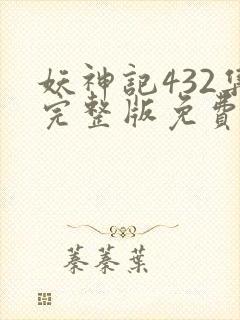 妖神記432集
完整版免費
蓁蓁葉